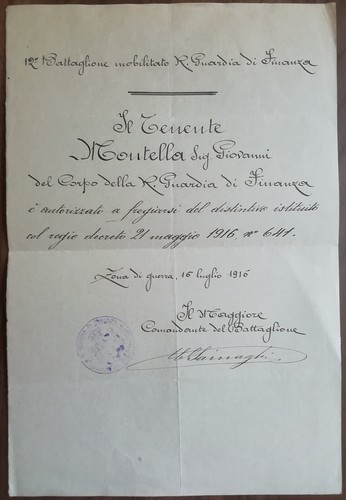 12º Battaglione mobilitato R. Guardia di Finanza
Il Tenente
Montella Sig. Giovanni
del Corpo della R. Guardia di Finanza
è autorizzato a fregiarsi del distintivo istituito
col regio decreto 21 maggio 1916, nº 641.
Zona di guerra, 16 luglio 1916
Il Maggiore
Comandante del Battaglione